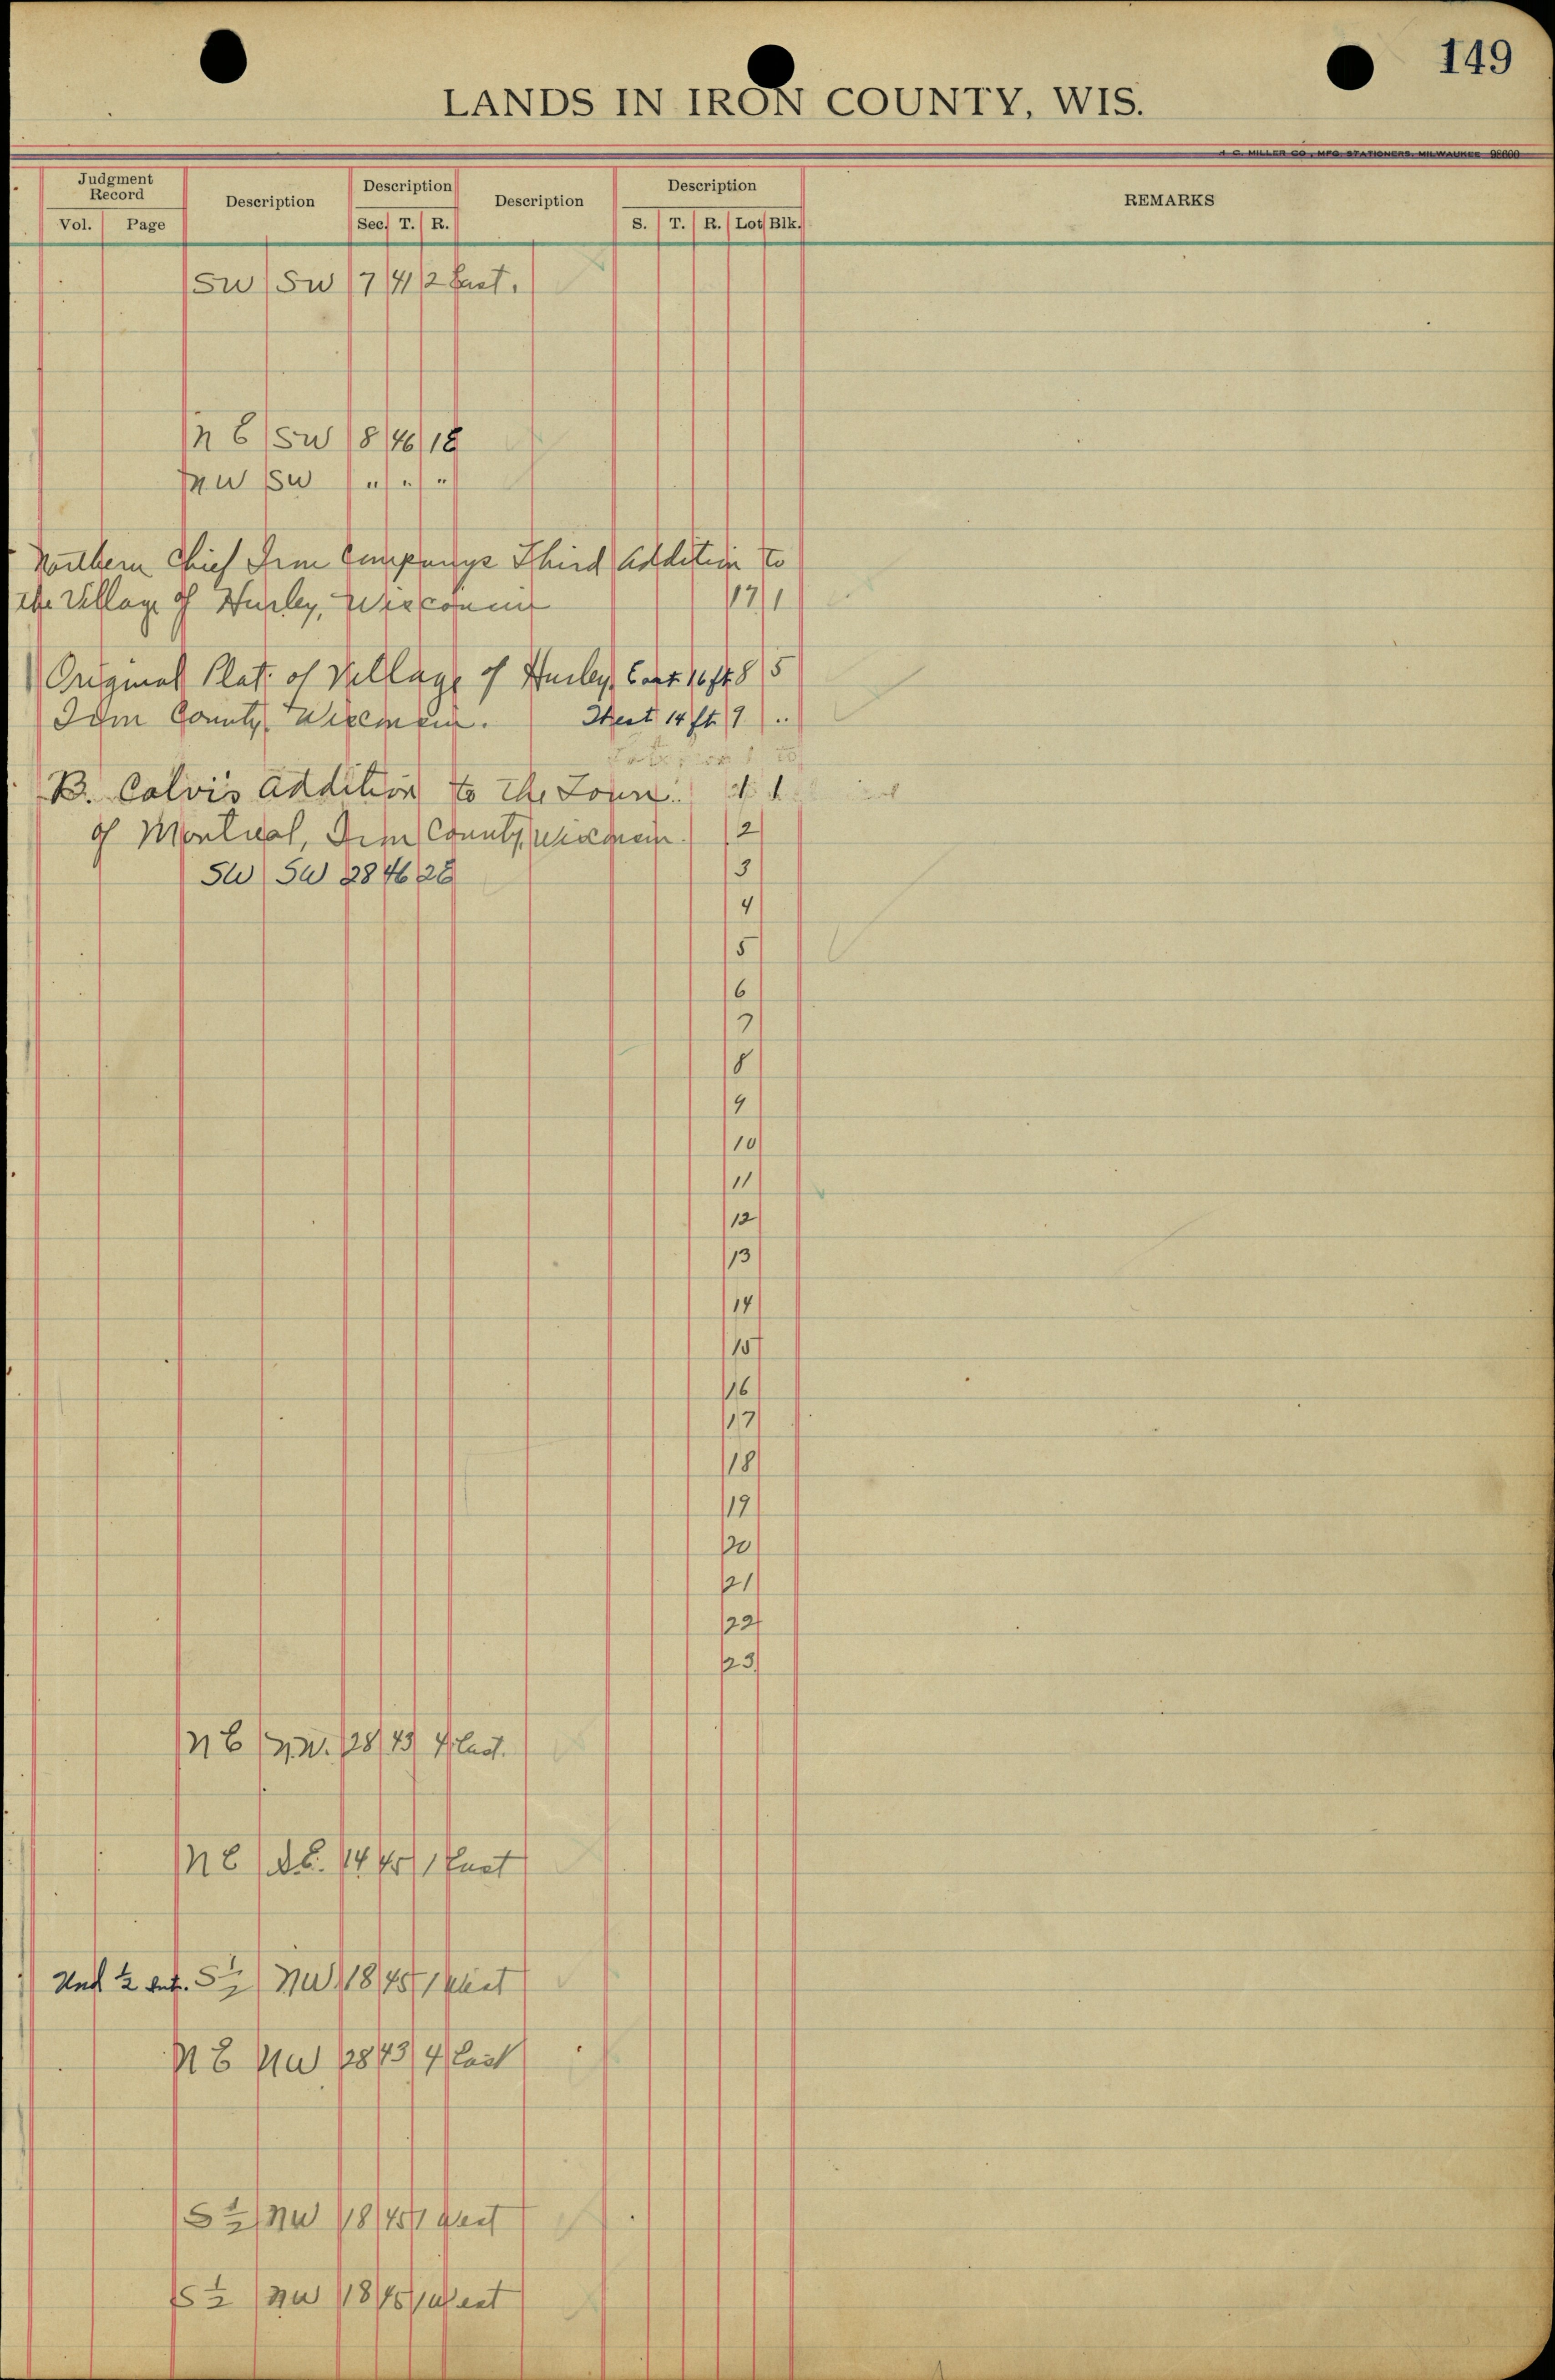 149
LANDS IN IRON COUNTY, WIS.
H. C. MILLER CO., MFG. STATIONERS, MILWAUKEE 98600
Judgment Record Description Description Description Description REMARKS
Vol. Page Sec. T. R. S. T. R. Lot Blk.
SW SW 7 41 2 East.
N E SW 8 46 1E
N W SW " " "
Northern Chief Iron Companys Third Addition to
the Village of Hurley, Wisconsin 17 1
Original Plat of Village of Hurley, East 16 ft 8 5
Iron County, Wisconsin. West 14 ft 9 "
B. Calvi's Addition to the Town 1
of Montreal, Iron County, Wisconsin. 2
SW SW 28 46 2E 3
4
5
6
7
8
9
10
11
12
13
14
15
16
17
18
19
20
21
22
23
N E N.W. 28 43 4 East.
N E S.E. 14 45 1 East
Und ½ Int. S ½ NW 18 45 1 West
N E NW 28 43 4 East
S ½ NW 18 45 1 West
S ½ NW 18 45 1 West